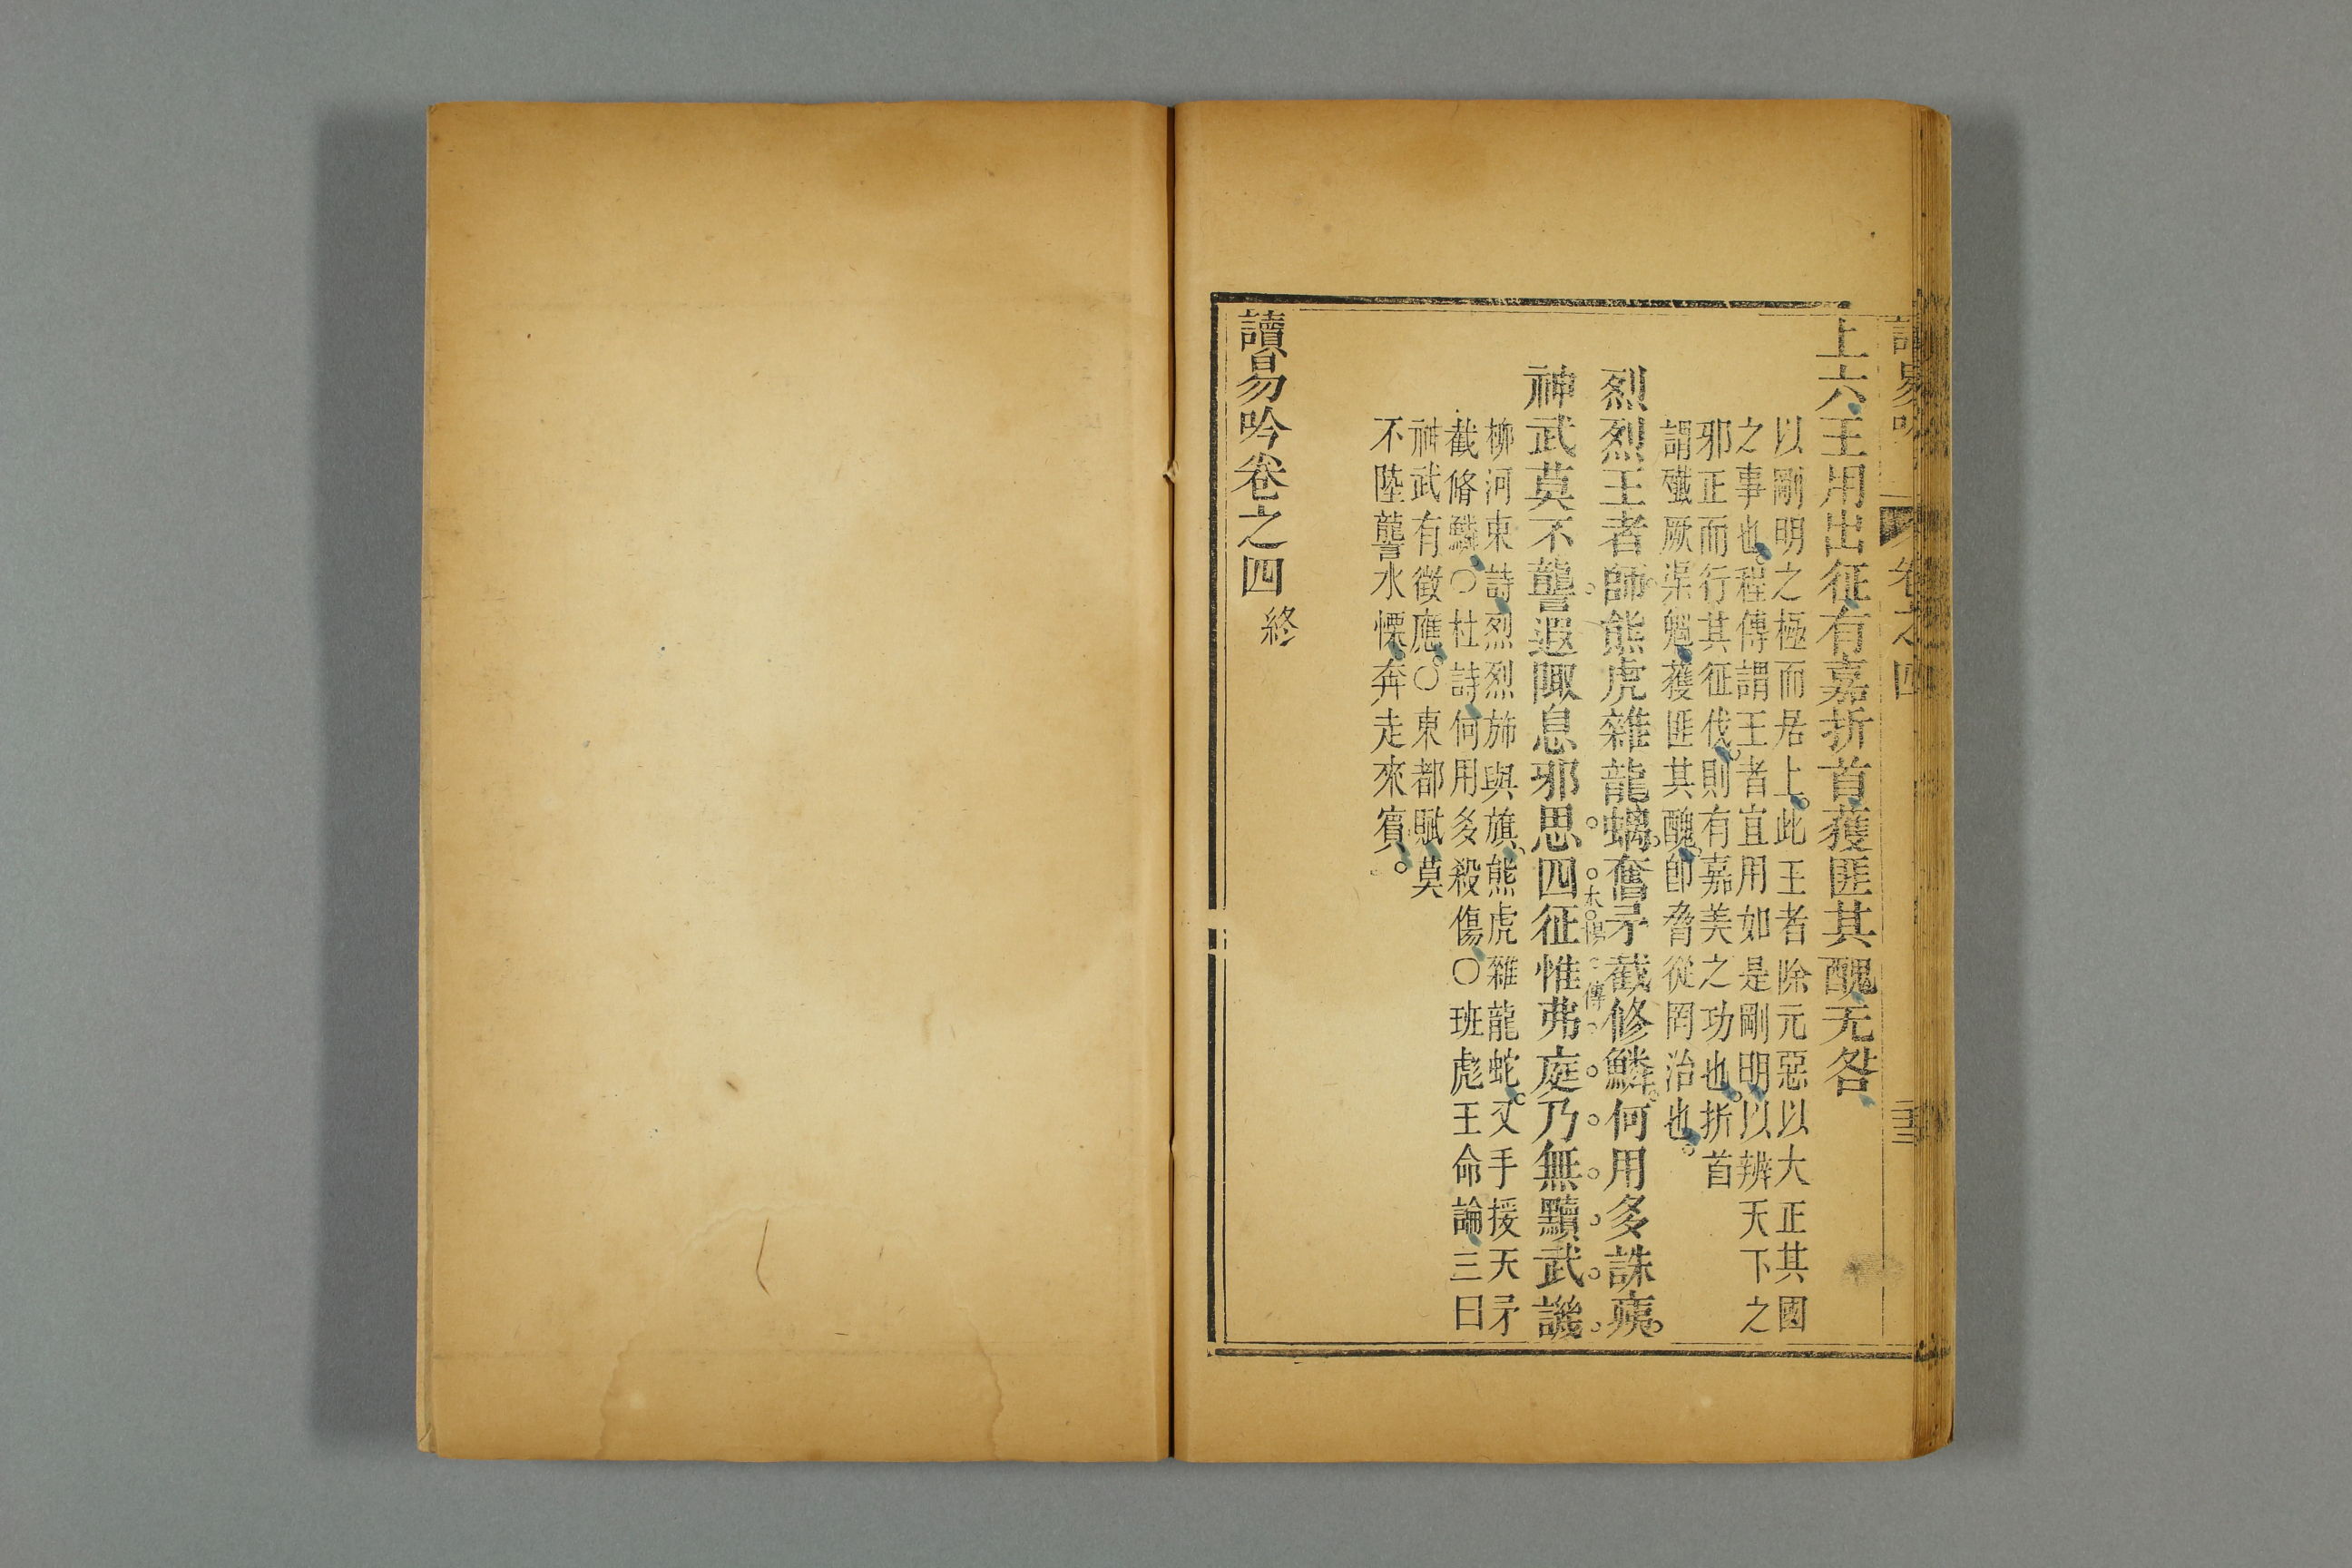 上六王用出征有嘉折首獲匪其醜无咎
以剛明之極而居上此王者除元惡以大正其國
之事也程傳謂王者宜用如是剛明以辨天下之
邪正而行其征伐則有嘉美之功也折首
謂殲厥渠魁獲匪其醜即脅從罔治也
烈烈王者師熊虎雜龍螭奮矛截修鱗何用多誅夷
神武莫不讋遐陬息邪思四征惟弗庭乃無黷武譏
柳河東詩烈烈旆與旗熊虎雜龍蛇杖手援天矛
截脩鱗〇杜詩何用多殺傷〇班彪王命論三曰
神武有徵應〇東都賦莫
不陸讋水慄奔走來賓
讀易吟卷之四 終